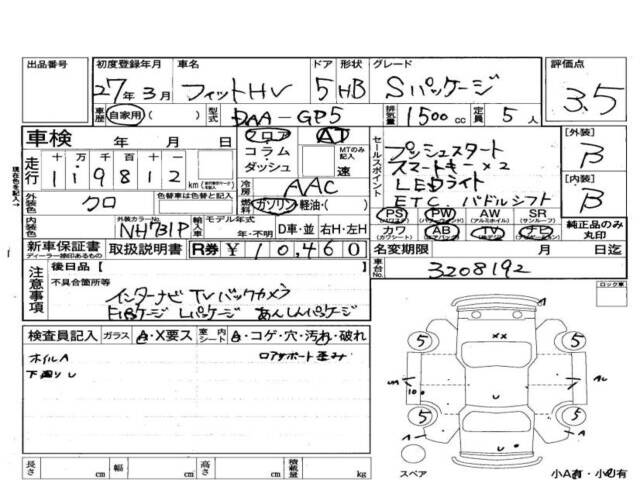 出品番号 初度登録年月 車名 ドア 形状 グレード 評価点
27年3月 フィットHV 5 HB Sパッケージ 3.5
車歴 自家用・( ) 型式 DAA-GP5 排気量 1500cc 定員 5人
車検 年 月 日 フロア AT
コラム・ダッシュ MTのみ記入 速
走行 十 万 千 百 十 一
119812 km
冷房 AAC
外装色 クロ 色替車は色替え前色
燃料 ガソリン・軽油・( )
内装色 外装カラーNo. NH731P 輸入車 モデル年式 年・不明 D車・並 右H・左H
セールスポイント
プッシュスタート
スマートキー×2
LEDライト
ETC、パドルシフト
PS PW AW SR
(パワステ) (パワーウィンドウ) (アルミホイル) (サンルーフ)
カワ AB TV ナビ
(カワシート) (エアバッグ) (テレビ) (ナビゲーション)
[外装] B
[内装] B
純正品のみ丸印
新車保証書 ディーラー捺印あるもの 取扱説明書 R券 ¥10,460
名変期限 月 日迄
車台No. 3208192
注意事項
後日品[
不具合箇所等
インターナビ TV バックカメラ
Lパッケージ あんしんパッケージ
ロック車
検査員記入 ガラス A・X要ス 室内シート A・コゲ・穴・汚れ・破れ
ホイルA
下廻りし
5 5
××
A
100
U
5 5
A A
U
スペア 小A有・小U有
長さ cm 幅 cm 高さ cm 積載量 kg